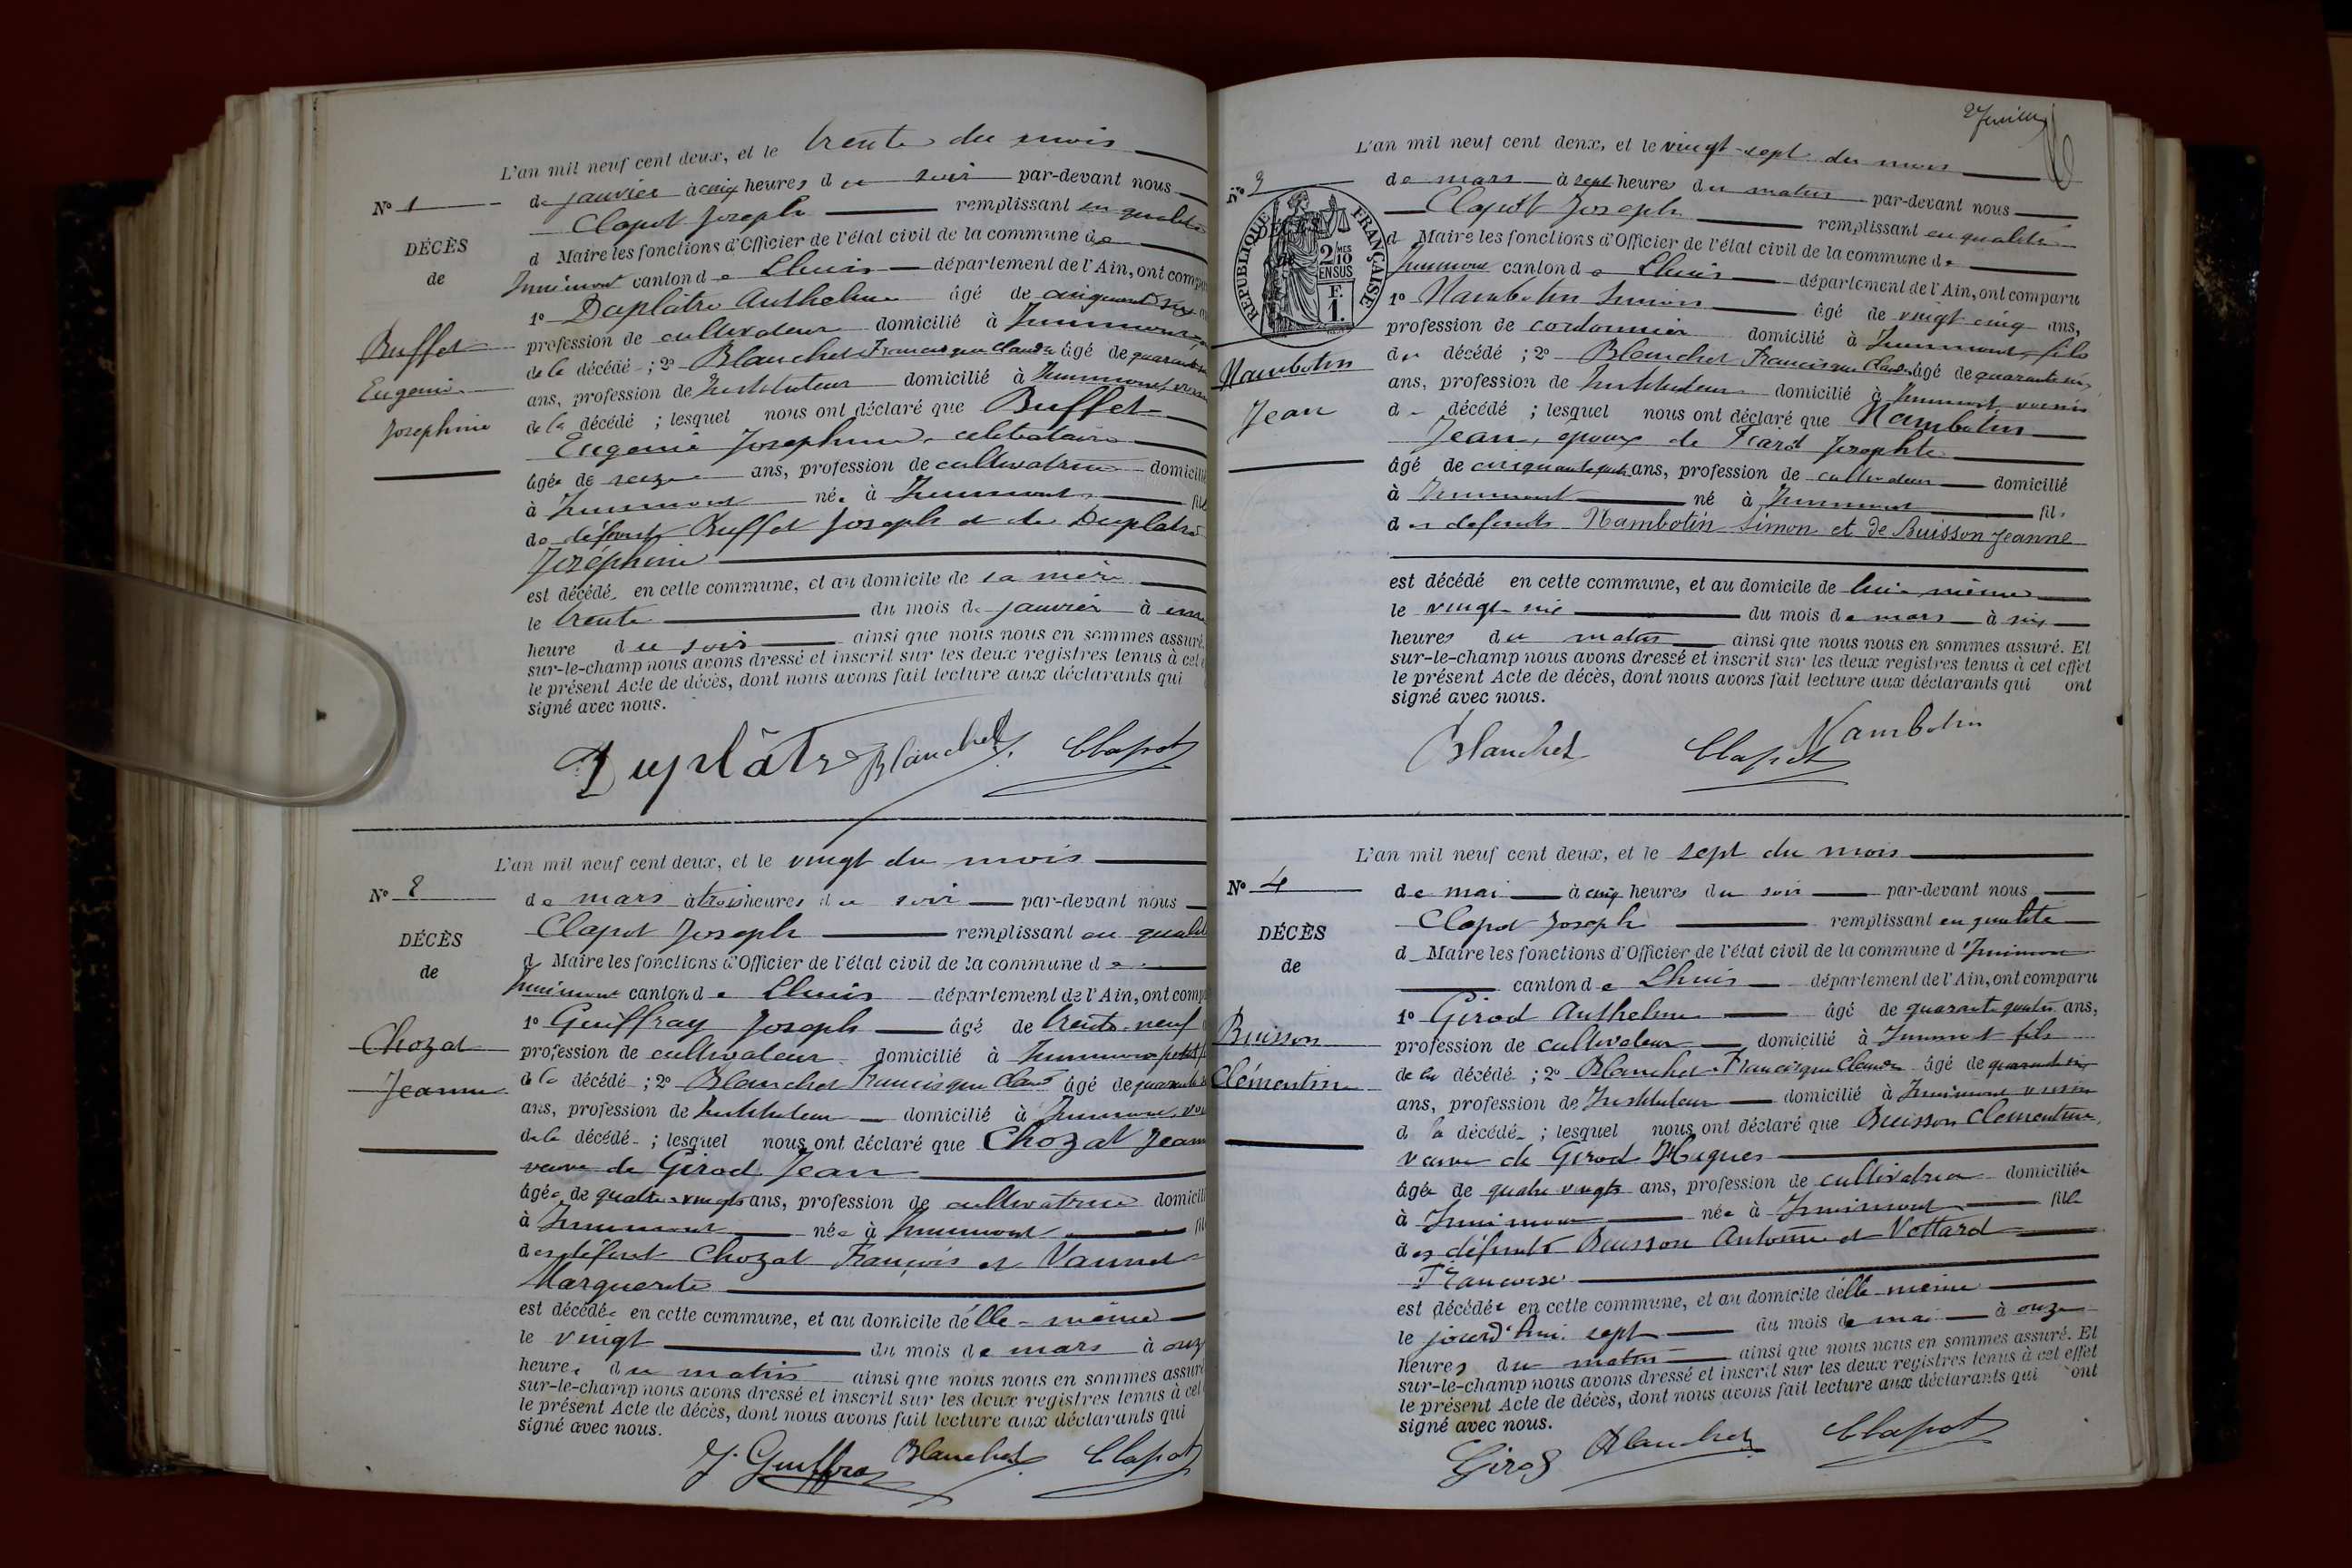 L'an mil neuf cent deux, et le trente du mois
No 1
de janvier à cinq heures du soir par-devant nous
Clapot Joseph remplissant en qualité
DÉCÈS
d Maire les fonctions d'Officier de l'état civil de la commune de
de
Innimont canton de Lhuis département de l'Ain, ont comp
1o Duplâtre Anthelme âgé de cinquante
Buffet
profession de cultivateur domicilié à Innimont
de la décédé ; 2o Blanchet Francisque Claude âgé de quarante
Eugénie
ans, profession de Instituteur domicilié à Innimont
Joséphine
de la décédé ; lesquel nous ont déclaré que Buffet
Eugénie Joséphine, célibataire
âgée de seize ans, profession de cultivatrice domicilié
à Innimont née à Innimont fil
de défunt Buffet Joseph et de Duplatre
Joséphine
est décédée en cette commune, et au domicile de sa mère
le trente du mois de janvier à une
heure du soir ainsi que nous nous en sommes assuré.
sur-le-champ nous avons dressé et inscrit sur les deux registres tenus à cet
le présent Acte de décès, dont nous avons fait lecture aux déclarants qui
signé avec nous.
Duplâtre Blanchet Clapot
L'an mil neuf cent deux, et le vingt du mois
No 2
de mars à trois heures du soir par-devant nous
Clapot Joseph remplissant en qualit
DÉCÈS
d Maire les fonctions d'Officier de l'état civil de la commune de
de
Innimont canton de Lhuis département de l'Ain, ont comp
1o Guiffray Joseph âgé de trente-neuf
Chozat
profession de cultivateur domicilié à Innimont petit
Jeanne
de la décédé ; 2o Blanchet Francisque Claude âgé de quarante
ans, profession de Instituteur domicilié à Innimont
de la décédé ; lesquel nous ont déclaré que Chozat Jeann
veuve de Girod Jean
âgée de quatre-vingts ans, profession de cultivatrice domicili
à Innimont née à Innimont fil
des défunt Chozat François et Vannet
Marguerite
est décédée en cette commune, et au domicile d'elle-même
le vingt du mois de mars à onz
heures du matin ainsi que nous nous en sommes assuré
sur-le-champ nous avons dressé et inscrit sur les deux registres tenus à cet
le présent Acte de décès, dont nous avons fait lecture aux déclarants qui
signé avec nous.
J. Guiffra Blanchet Clapot
L'an mil neuf cent deux, et le vingt-sept du mois
No 3
de mars à sept heures du matin par-devant nous
Clapot Joseph remplissant en qualité
RÉPUBLIQUE FRANÇAISE
DÉCÈS
2 MES 10 EN SUS
F. 1.
d Maire les fonctions d'Officier de l'état civil de la commune de
Innimont canton de Lhuis département de l'Ain, ont comparu
1o Nambotin Simon âgé de vingt cinq ans,
profession de cordonnier domicilié à Innimont, fils
Nambotin
du décédé ; 2o Blanchet Francisque Claude âgé de quarante six
ans, profession de Instituteur domicilié à Innimont, voisin
Jean
du décédé ; lesquel nous ont déclaré que Nambotin
Jean, époux de Joséphte
âgé de ans, profession de cultivateur domicilié
à Innimont né à Innimont fils
des defunts Nambotin Simon et de Buisson Jeanne
est décédé en cette commune, et au domicile de lui-même
le vingt-six du mois de mars à six
heures du matin ainsi que nous nous en sommes assuré. Et
sur-le-champ nous avons dressé et inscrit sur les deux registres tenus à cet effet
le présent Acte de décès, dont nous avons fait lecture aux déclarants qui ont
signé avec nous.
Blanchet Clapot Nambotin
L'an mil neuf cent deux, et le sept du mois
No 4
de mai à cinq heures du soir par-devant nous
Clapot Joseph remplissant en qualité
DÉCÈS
d Maire les fonctions d'Officier de l'état civil de la commune d'Innimont
de
canton de Lhuis département de l'Ain, ont comparu
1o Girod Anthelme âgé de quarante quatre ans,
Buisson
profession de cultivateur domicilié à Innimont fils
Clémentine
de la décédé ; 2o Blanchet Francisque Claude âgé de quarante six
ans, profession de Instituteur domicilié à Innimont voisin
d la décédée ; lesquel nous ont déclaré que Buisson Clémentine,
veuve de Girod Hugues
âgée de quatre vingts ans, profession de cultivatrice domiciliée
à Innimont née à Innimont fille
des défunts Buisson Antoine et Vettard
Françoise
est décédée en cette commune, et au domicile d'elle-même
le jourd'hui sept du mois de mai à onze
heures du matin ainsi que nous nous en sommes assuré. Et
sur-le-champ nous avons dressé et inscrit sur les deux registres tenus à cet effet
le présent Acte de décès, dont nous avons fait lecture aux déclarants qui ont
signé avec nous.
Girod Blanchet Clapot